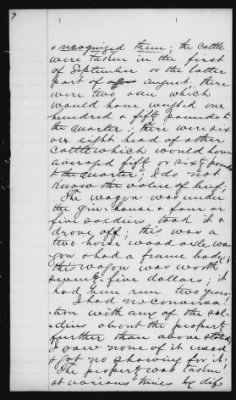 7
& recognized them; the cattle
were taken in the first
of September or the latter
part of August, there
were two oxen which
would have weighed one
hundred & fifty pounds to
the quarter; there were six
or eight head of other
cattle which would have
averaged fifty or sixty pounds
to the quarter; I do not
know the value of beef;
The wagon was under
the gin house & four or
five soldiers took it &
drove off; this was a
two horse wood axle wag-
on & had a frame body;
the wagon was worth
seventy five dollars; it
had been run two years.
I had no conversa-
tion with any of the sol-
diers about the property
further than above stated
I saw none of it used
& got no showing for it.
The property was taken
at various times by dif-